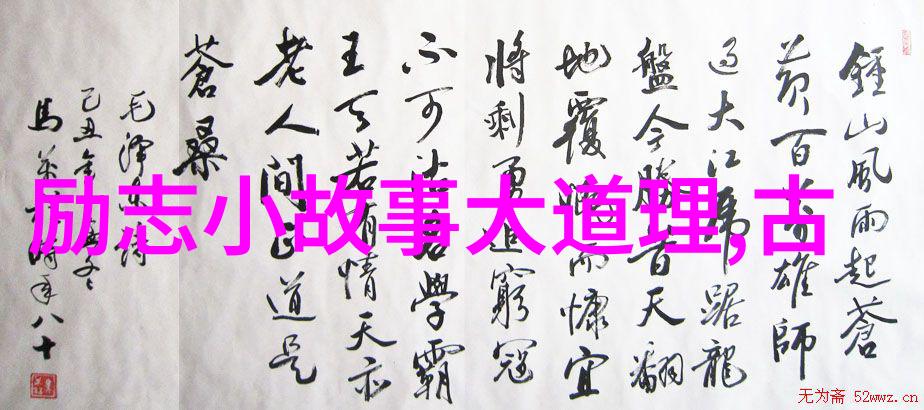 鍾山風雨起蒼
黄百萬雄師
過大江虎踞龍
盤今勝昔天翻
地覆慨而慷宜
將剩勇追窮寇
不可沽名學霸
王天若有情天亦
老人間正道是
蒼桑
毛澤東詩
己丑
馬 時年八十
励志小故事大道理,古
无为斋 52wwz.cn